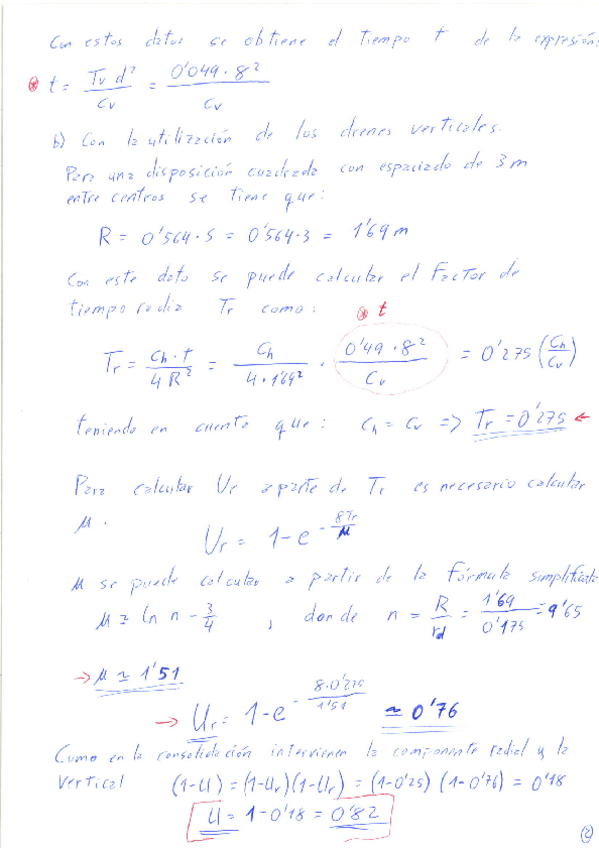 Con estos datos se obtiene el tiempo t de la expresión:
* t = Tv d² / Cv = 0'049 · 8² / Cv
b) Con la utilización de los drenes verticales.
Para una disposición cuadrada con espaciado de 3 m
entre centros se tiene que:
R = 0'564 · S = 0'564 · 3 = 1'69 m
Con este dato se puede calcular el Factor de
tiempo radia Tr como: * t
Tr = Ch · t / 4 R² = Ch / 4 · 1'69² · 0'49 · 8² / Cv = 0'275 (Ch / Cv)
teniendo en cuenta que: Ch = Cv => Tr = 0'275 ←
Para calcular Ur a parte de Tr es necesario calcular
μ.
Ur = 1 - e^(- 8Tr / μ)
μ se puede calcular a partir de la fórmula simplificada
μ ≃ ln n - 3/4 , donde n = R / rd = 1'69 / 0'175 = 9'65
→ μ ≃ 1'51
→ Ur = 1 - e^(- 8·0'275 / 1'51) ≃ 0'76
Como en la consolidación intervienen la componente radial y la
vertical (1-U) = (1-Uv)(1-Ur) = (1-0'25) (1-0'76) = 0'18
U = 1 - 0'18 = 0'82
2